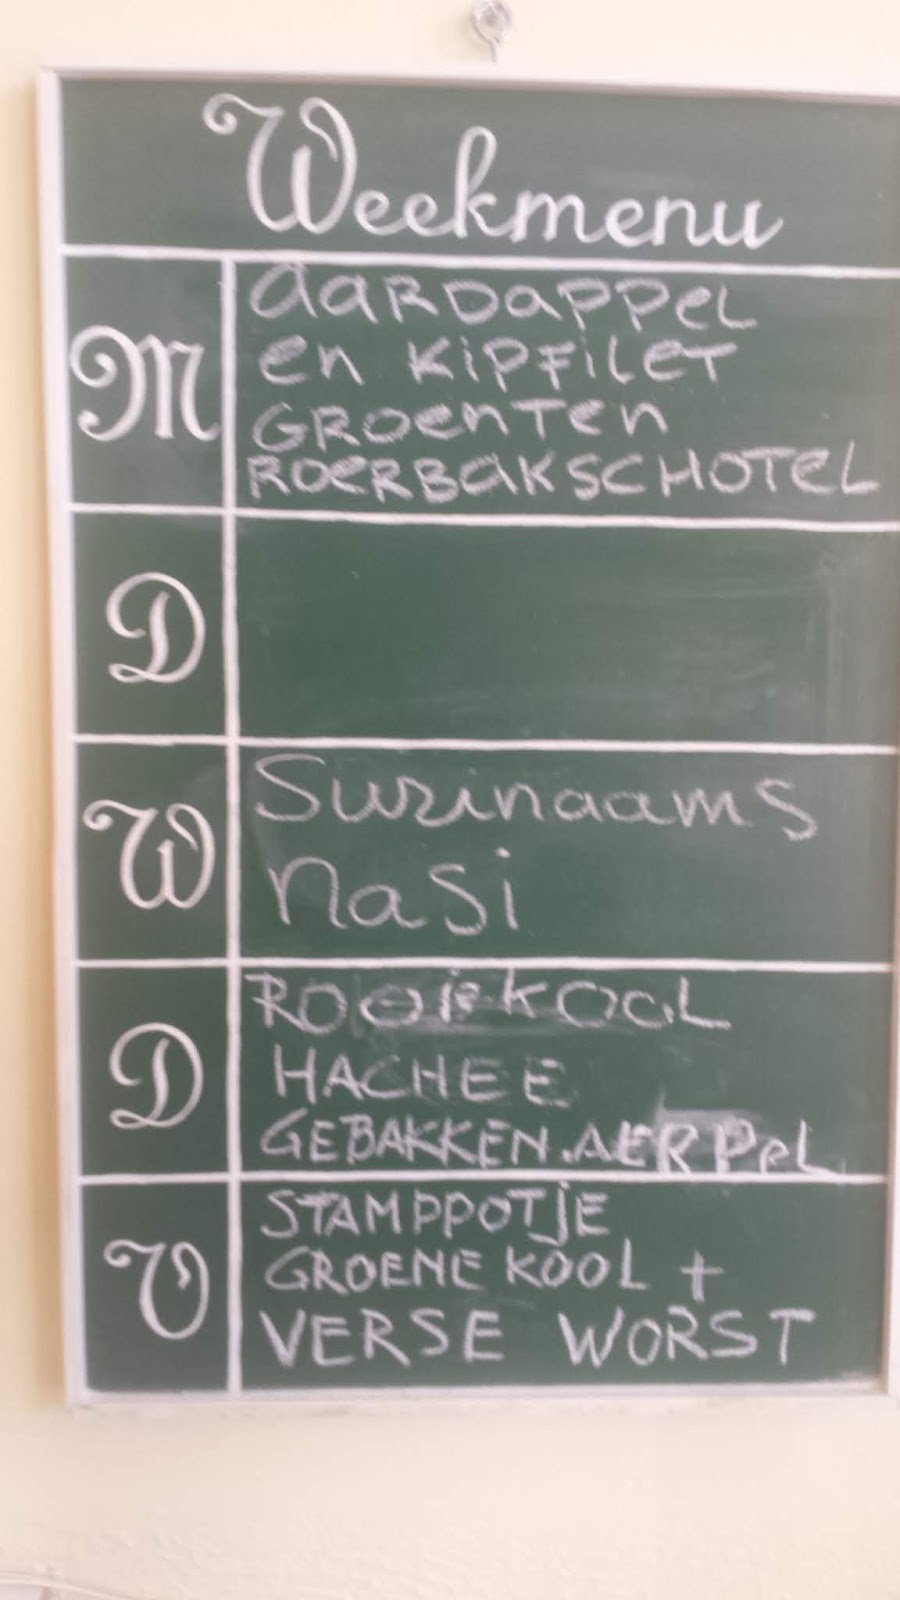 Weekmenu
M
AARDAPPEL
EN KIPFILET
GROENTEN
ROERBAKSCHOTEL
D
W
Surinaams
Nasi
D
ROOIEKOOL
HACHEE
GEBAKKEN.AERPEL
V
STAMPPOTJE
GROENE KOOL +
VERSE WORST